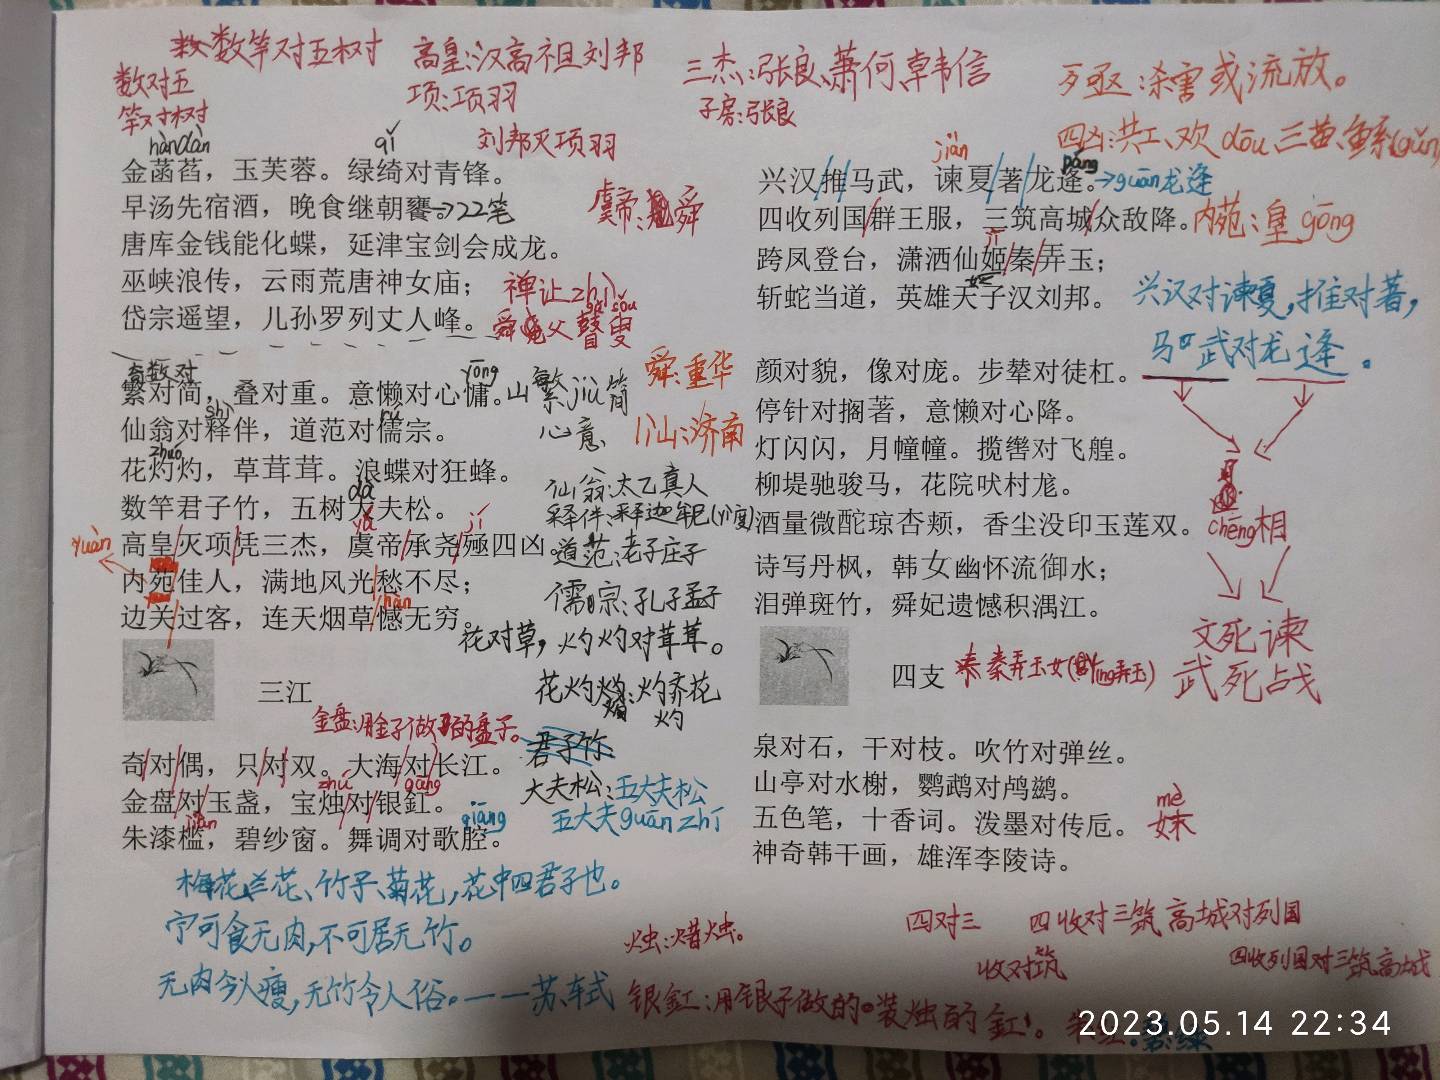 数竿对五树寸
数对五
竿对树
高皇:汉高祖刘邦
项:项羽
刘邦灭项羽
三杰:张良、萧何、韩信
子房:张良
歹亟:杀害或流放。
四凶:共工、欢dōu、三苗、鱼系(gǔn)
hàndàn
qǐ
金菡萏，玉芙蓉。绿绮对青锋。
早汤先宿酒，晚食继朝饔。→22笔
唐库金钱能化蝶，延津宝剑会成龙。
巫峡浪传，云雨荒唐神女庙；
岱宗遥望，儿孙罗列丈人峰。
虞帝:舜
禅让zhì
gǔ sǒu
舜父瞽叟
奇数对
yōng
繁对简，叠对重。意懒对心慵。
山繁jiù简
心意
舜:重华
历山:济南
shì
rú
仙翁对释伴，道范对儒宗。
zhuó
花灼灼，草茸茸。浪蝶对狂蜂。
dà
数竿君子竹，五树大夫松。
yú
jí
yuàn
高皇灭项凭三杰，虞帝承尧殛四凶。
内苑佳人，满地风光愁不尽；
hàn
边关过客，连天烟草憾无穷。
仙翁:太乙真人
释伴:释迦牟尼
道范:老子庄子
儒宗:孔子孟子
花对草，灼灼对茸茸。
花灼灼:灼乔花
灼
君子竹
大夫松:五大夫松
五大夫guān zhí
三江
金盘:用金子做的盘子。
奇对偶，只对双。大海对长江。
zhú
gāng
金盘对玉盏，宝烛对银釭。
jiàn
qiāng
朱漆槛，碧纱窗。舞调对歌腔。
梅花、兰花、竹子、菊花，花中四君子也。
宁可食无肉，不可居无竹。
无肉令人瘦，无竹令人俗。——苏东式
烛:蜡烛。
银釭:用银子做的装烛的釭。
jiàn
páng
兴汉推马武，谏夏著龙逄。→guān龙逢
四收列国群王服，三筑高城众敌降。
内苑:皇gōng
jī
跨凤登台，潇洒仙姬秦弄玉；
斩蛇当道，英雄天子汉刘邦。
兴汉对谏夏，推对著，
马武对龙逢。
颜对貌，像对庞。步辇对徒杠。
停针对搁著，意懒对心降。
灯闪闪，月幢幢。揽辔对飞艎。
柳堤驰骏马，花院吠村尨。
酒量微酡琼杏颊，香尘没印玉莲双。
chēng相
诗写丹枫，韩女幽怀流御水；
泪弹斑竹，舜妃遗憾积湡江。
文死谏
武死战
四支
秦弄玉女(yíng弄玉)
泉对石，干对枝。吹竹对弹丝。
山亭对水榭，鹦鹉对鸬鹚。
五色笔，十香词。泼墨对传卮。
mè
妺
神奇韩干画，雄浑李陵诗。
四对三
四收对三筑 高城对列国
收对筑
四收列国对三筑高城
2023.05.14 22:34